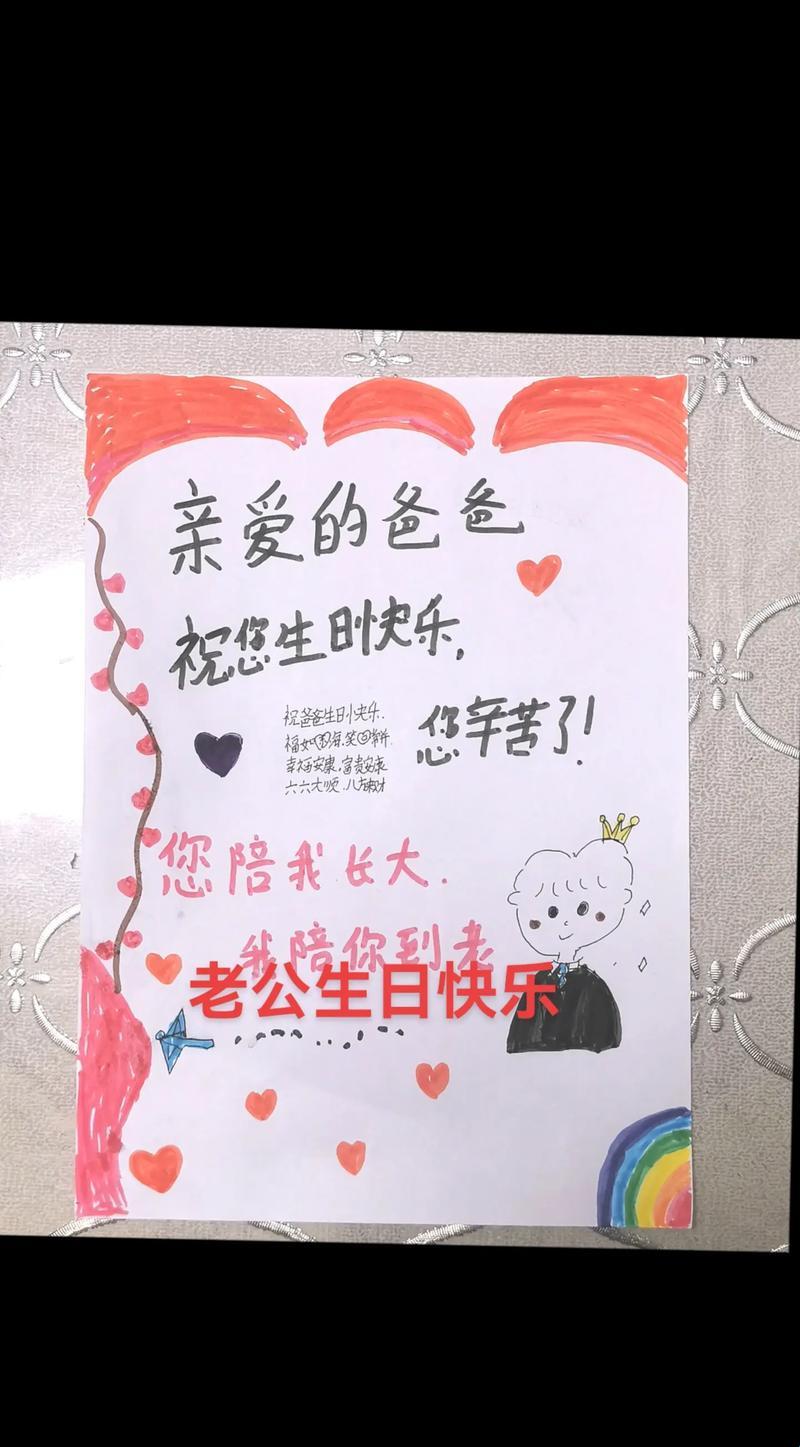 亲爱的爸爸
祝您生日快乐,
您辛苦了!
祝爸爸生日快乐.
福如海.笑口常开.
幸福安康.富贵安康
六六大顺.八方来财
您陪我长大.
我陪你到老
老公生日快乐